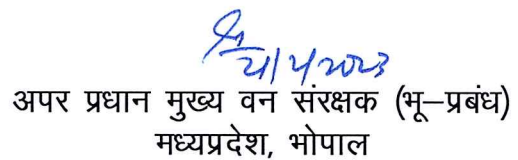 21/4/2023
अपर प्रधान मुख्य वन संरक्षक (भू–प्रबंध)
मध्यप्रदेश, भोपाल